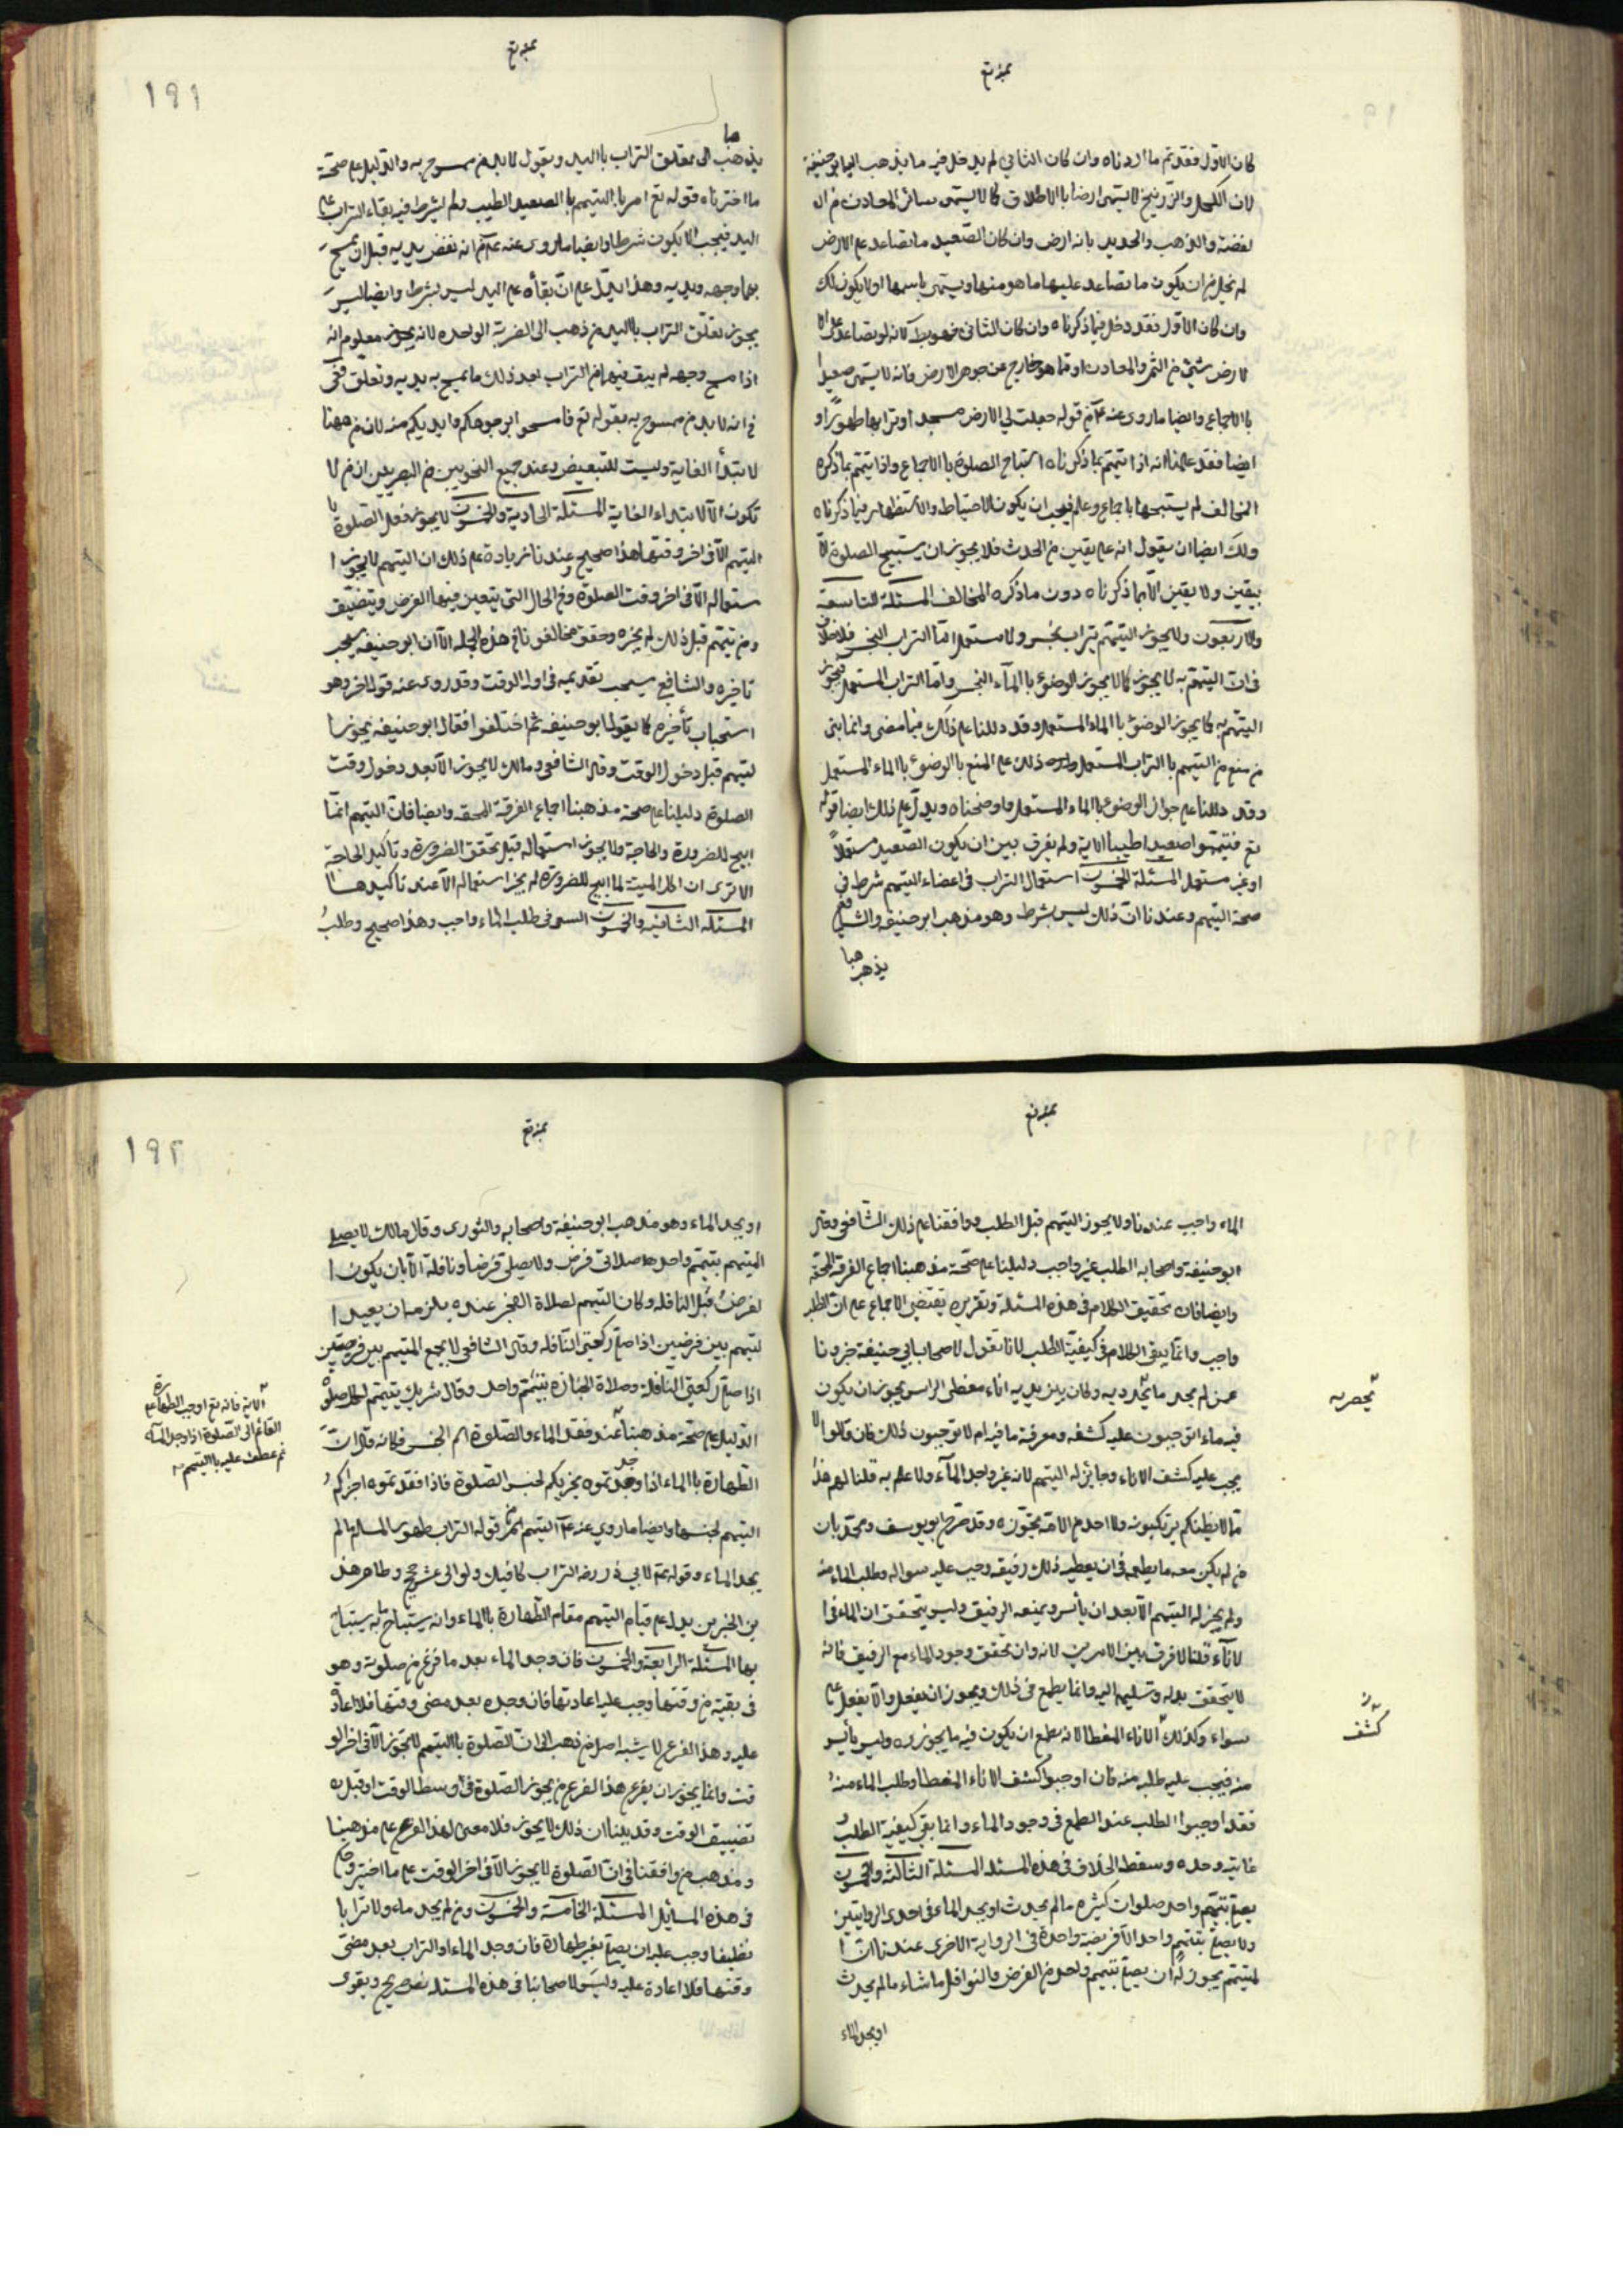 بمبئه تع
كان الاول فقد تم ما اردناه وان كان الثاني لم يدخل فيه ما يذهب اليه ابو حنيفة
لان الكحل والزرنيخ لا يسمى ارضا بالاطلاق كما لا يسمى سائر المعادن من ال
لفضة والذهب والحديد بانه ارض وان كان الصعيد ما تصاعد على الارض
لم يخل من ان يكون ما تصاعد عليها ما هو منها ويسمى باسمها او لا يكون كك
وان كان الاول فقد دخل فيما ذكرناه وان كان الثاني فهو بط لانه لو تصاعد على ا
لارض شئ من الثمر والمعادن او ما هو خارج عن جوهر الارض فانه لا يسمى صعيدا
بالاجماع وايضا ما روى عنه ع م من قوله جعلت لي الارض مسجدا وترابها طهورا و
ايضا فقد علمنا انه اذا تيمم بما ذكرناه استباح الصلوة بالاجماع واذا تيمم بما ذكره
المخالف لم يستبحها باجماع وعلم فيجب ان يكون الاحتياط والاستظهار فيما ذكرناه
ولك ايضا ان يقول انه على يقين من الحدث فلا يجوز ان يستبيح الصلوة الا
بيقين ولا يقين الا بما ذكرناه دون ما ذكره المخالف المسئلة التاسعة
والاربعون ولا يجوز التيمم بتراب نجس ولا مستعمل اما التراب النجس فلا خلاف
في ان التيمم به لا يجوز كما لا يجوز الوضوء بالماء النجس واما التراب المستعمل فيجوز
التيمم به كما يجوز الوضوء بالماء المستعمل وقد دللنا على ذلك فيما مضى وانما بنى
من منع من التيمم بالتراب المستعمل ذلك على المنع بالوضوء بالماء المستعمل
وقد دللنا على جواز الوضوء بالماء المستعمل واوضحناه ويدل على ذلك ايضا قوله
تع فتيمموا صعيدا طيبا الاية ولم يفرق بين ان يكون الصعيد مستعملا
او غير مستعمل المسئلة الخمسون استعمال التراب في اعضاء التيمم شرط في
صحة التيمم وعندنا ان ذلك ليس بشرط وهو مذهب ابو حنيفة والشافعي
يذهبها
بمبئه تع
191
يذهبها الى تعلق التراب باليد ويقول لا بد من ممسوح به والدليل على صحة
ما اخترناه قوله تع امر بالتيمم بالصعيد الطيب ولم يشرط فيه بقاء التراب على
اليد فيجب الا يكون شرطا وايضا ما روى عنه ع م انه نفض يديه قبل ان يمسح
بهما وجهه ويديه وهذا يدل على ان بقاه على اليد ليس بشرط وايضا ليس
يجوز تعلق التراب باليد من ذهب الى الضربة الواحده لانه يجوز معلوم انه
اذا مسح وجهه لم يبق فيهما من التراب بعد ذلك ما يمسح به يديه وتعلق
في انه لا بد من ممسوح به بقوله تع فامسحوا بوجوهكم وايديكم منه لان من ههنا
لابتدأ الغاية وليست للتبعيض وعند جميع النحويين من البصريين ان من لا
تكون الا لابتداء الغاية المسئلة الحادية والخمسون لا يجوز فعل الصلوة با
التيمم الا في اخر وقتها هذا صحيح وعندنا زيادة على ذلك ان التيمم لا يجوز ا
ستعماله الا في اخر وقت الصلوة وفي الحال التي يتعين فيها الفرض ويتضيق
ومن تيمم قبل ذلك لم يجزه وحقق مخالفونا في هذه الجملة الا ان ابو حنيفة يحب
تاخيره والشافعي يستحب تقديمه في اول الوقت وقد روى عنه قول اخر وهو
استحباب تأخيره كما يقول ابو حنيفة ثم اختلفوا فقال ابو حنيفة يجوز ا
لتيمم قبل دخول الوقت وقال الشافعي ومالك لا يجوز الا بعد دخول وقت
الصلوة دليلنا على صحة مذهبنا اجماع الفرقة المحقه وايضا فان التيمم انما
ابيح للضرورة والحاجة ولا يجوز استعماله قبل تحقق الضرورة وتأكيد الحاجة
الا ترى ان اكل الميتة لما ابيح للضرورة لم يجز استعماله الا عند تاكيدها
المسئلة الثانية والخمسون السعي في طلب الماء واجب وهذا صحيح وطلب
بمبئه تع
الماء واجب عندنا ولا يجوز التيمم قبل الطلب ووافقنا على ذلك الشافعي وقال
ابو حنيفة واصحابه الطلب غير واجب دليلنا على صحة مذهبنا اجماع الفرقة المحقه
وايضا فان تحقيق الكلام في هذه المسئلة وتقريره يقتضي الاجماع على ان الطلب
واجب وانما يبقى الكلام في كيفية الطلب لانا نقول لاصحاب ابي حنيفة خبرونا
عمن لم يجد ما في يديه وكان بين يديه اناء مغطى الراس يجوز ان يكون
فيه ماء اتوجبون عليه كشفه ومعرفة ما فيه ام لا توجبون ذلك فان قالوا لا
يجب عليه كشف الاناء وجائز له التيمم لانه غير واجد الماء ولا علم به قلنا لهم هذا
مما لا يظنكم يرتكبونه ولا احد من الامة يجوزه وقد صرح ابو يوسف ومحمد بان
من لم يكن معه ما يطمع في ان يعطيه ذلك رفيقه وجب عليه سواله وطلب الماء منه
ولم يجز له التيمم الا بعد ان يأس ويمنعه الرفيق وليس يتحقق ان الماء في ا
لاناء قلنا لا فرق بين الامرين لانه وان تحقق وجود الماء مع الرفيق فانه
لا يتحقق بذله وتسليمه اليه وانما يطمع في ذلك ويجوز ان يفعل والا يفعل
سواء وكذلك الاناء المغطا لانه يطمع ان يكون فيه ما يجوزه وليس يأيس
منه فيجب عليه طلبه منه فان اوجبوا كشف الاناء المغطا وطلب الماء منه
فقد اوجبوا الطلب عند الطمع في وجود الماء وانما بقى كيفية الطلب
غايته وحده وسقط الخلاف في هذه المسئلة المسئلة الثالثة والخمسون
يصلي بتيمم واحد صلوات كثيره ما لم يحدث او يجد الماء في احدى الروايتين
ولا يصلي بتيمم واحد الا فريضة واحدة في الرواية الاخرى عندنا ان ا
لمتيمم يجوز له ان يصلي بتيمم واحد من الفرض والنوافل ما شاء ما لم يحدث
او يجد الماء
تحصره
كشف
بمبئه تع
192
او يجد الماء وهو مذهب ابو حنيفة واصحابه والثورى وقال مالك لا يصلي
المتيمم بتيمم واحد صلاتي فرض ولا يصلي فرضا ونافلة الا بان يكون ا
لفرض قبل النافله وكان التيمم لصلاة الفجر عنده يلزمه ان يعيد ا
لتيمم بين فرضين اذا صلى ركعتي النافله وقال الشافعي لا يجمع المتيمم بين فرضين
اذا صلى ركعتي النافلة وصلاة الجنازه بتيمم واحد وقال شريك يتيمم لكل صلوة
الدليل على صحة مذهبنا عند فقد الماء والصلوة اسم الجنس فكانه قال ان
الطهارة بالماء اذا وجدتموه يجزيكم لجنس الصلوة فاذا فقدتموه اجزاكم
التيمم لجنسها وايضا ما روي عنه ع م قوله التراب طهور المسلم ما لم
يجد الماء وقوله ع م لابي ذر رضه التراب كافيك ولو الى عشر حجج وظاهر هذ
ين الخبرين يدل على قيام التيمم مقام الطهارة بالماء وانه يستباح به يستباح
بها المسئلة الرابعة والخمسون فان وجد الماء بعد ما فرغ من صلوته وهو
في بقية من وقتها وجب عليه اعادتها فان وجده بعد مضى وقتها فلا اعادة
عليه وهذا الفرع لا يشبه اصل من ذهب الى ان الصلوة بالتيمم لا تجوز الا في اخر الو
قت وانما يجوز ان يفرع هذا الفرع من يجوز الصلوة في اوسط الوقت او قبل
تضييق الوقت وقد بينا ان ذلك لا يجوز فلا معنى لهذا الفرع على مذهبنا
ومذهب من وافقنا في ان الصلوة لا يجوز الا في اخر الوقت على ما اخبر
في هذه المسائل المسئلة الخامسة والخمسون ومن لم يجد ماء ولا ترابا
نظيفا وجب عليه ان يصلي بغير طهارة فان وجد الماء او التراب بعد مضى
وقتها فلا اعادة عليه وليس لاصحابنا في هذه المسئلة نص صريح ويقوى
الاية فانه تع اوجب الطهارة على
القائم الى الصلوة اذا وجد الماء
ثم عطف عليه بالتيمم